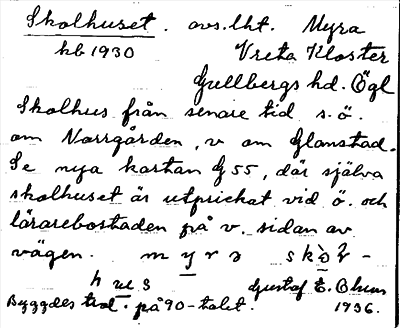 Skolhuset. avs. lht. Myra
kb 1930 Vreta Kloster
Gullbergs hd. Ögl
Skolhus från senare tid s.ö.
om Norrgården, v om Glanstad.
Se nya kartan G 55, där själva
skolhuset är utprickat vid ö. och
lärarebostaden på v. sidan av
vägen. m y r a
Gustaf E.
Byggdes på 90-talet. 1936.